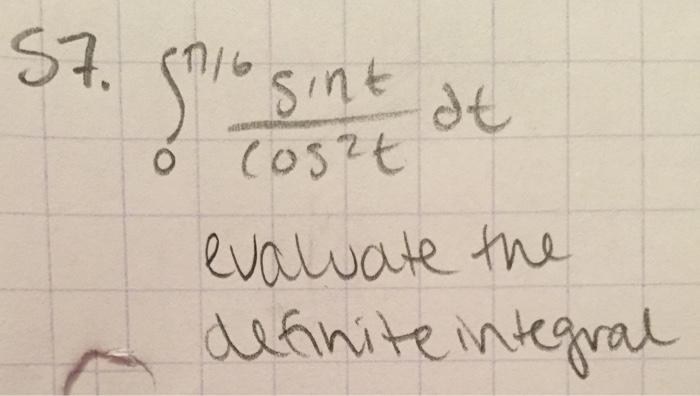 57. ∫₀^π/6 sin t / cos²t dt
evaluate the
definite integral